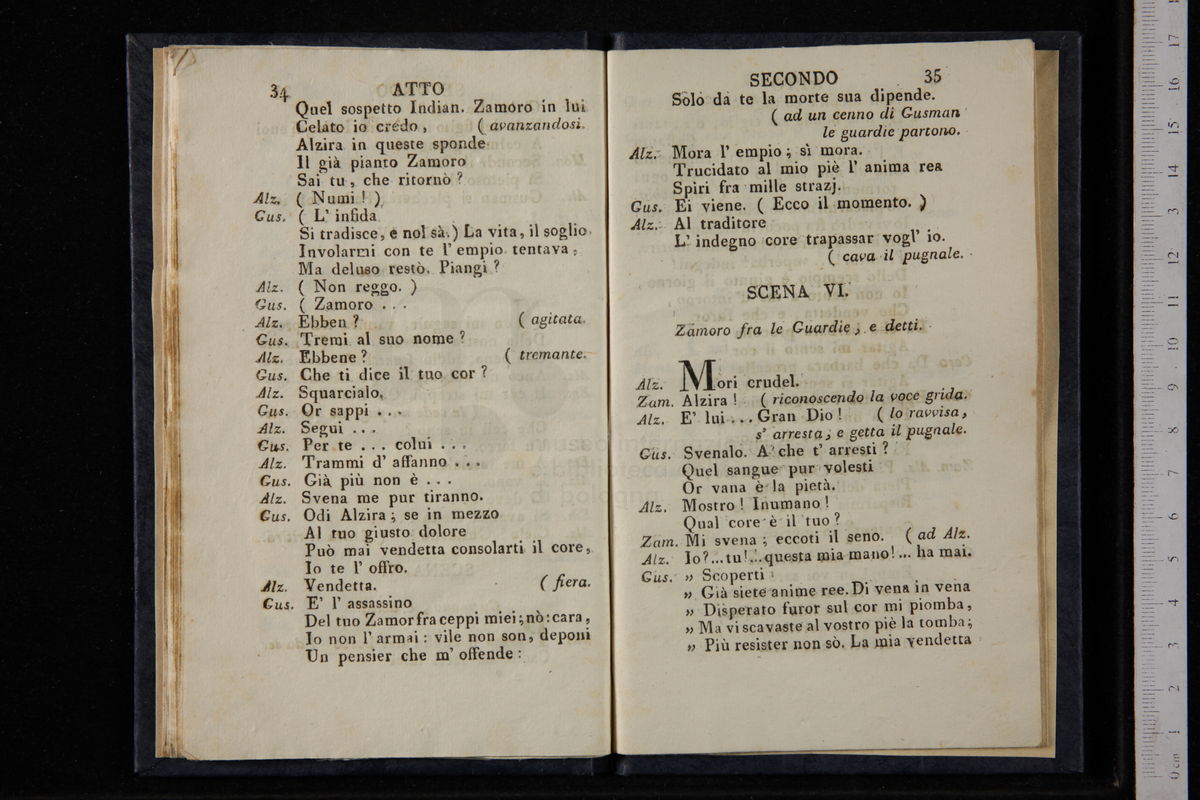 34 ATTO
Quel sospetto Indian. Zamoro in lui
Celato io credo, ( avanzandosi.
Alzira in queste sponde
Il già pianto Zamoro
Sai tu, che ritornò ?
Alz. ( Numi ! )
Gus. ( L' infida
Si tradisce, e nol sà. ) La vita, il soglio
Involarmi con te l' empio tentava,
Ma deluso restò. Piangi ?
Alz. ( Non reggo. )
Gus. ( Zamoro . . .
Alz. Ebben ? ( agitata.
Gus. Tremi al suo nome ?
Alz. Ebbene ? ( tremante.
Gus. Che ti dice il tuo cor ?
Alz. Squarcialo,
Gus. Or sappi . . .
Alz. Segui . . .
Gus. Per te . . . colui . . .
Alz. Trammi d' affanno . . .
Gus. Già più non è . . .
Alz. Svena me pur tiranno.
Gus. Odi Alzira ; se in mezzo
Al tuo giusto dolore
Può mai vendetta consolarti il core,
Io te l' offro.
Alz. Vendetta. ( fiera.
Gus. E' l' assassino
Del tuo Zamor fra ceppi miei ; nò : cara,
Io non l' armai : vile non son, deponi
Un pensier che m' offende :
SECONDO 35
Solo da te la morte sua dipende.
( ad un cenno di Gusman
le guardie partono.
Alz. Mora l' empio ; sì mora.
Trucidato al mio piè l' anima rea
Spiri fra mille strazj.
Gus. Ei viene. ( Ecco il momento. )
Alz. Al traditore
L' indegno core trapassar vogl' io.
( cava il pugnale.
SCENA VI.
Zamoro fra le Guardie, e detti.
Alz. Mori crudel.
Zam. Alzira ! ( riconoscendo la voce grida.
Alz. E' lui . . . Gran Dio ! ( lo ravvisa,
s' arresta, e getta il pugnale.
Gus. Svenalo. A che t' arresti ?
Quel sangue pur volesti
Or vana è la pietà.
Alz. Mostro ! Inumano !
Qual core è il tuo ?
Zam. Mi svena ; eccoti il seno. ( ad Alz.
Alz. Io ?... tu !... questa mia mano ! ... ha mai.
Gus. „ Scoperti
„ Già siete anime ree. Di vena in vena
„ Disperato furor sul cor mi piomba,
„ Ma vi scavaste al vostro piè la tomba ;
„ Più resister non sò. La mia vendetta
museo internazionale
e biblioteca
di bologna